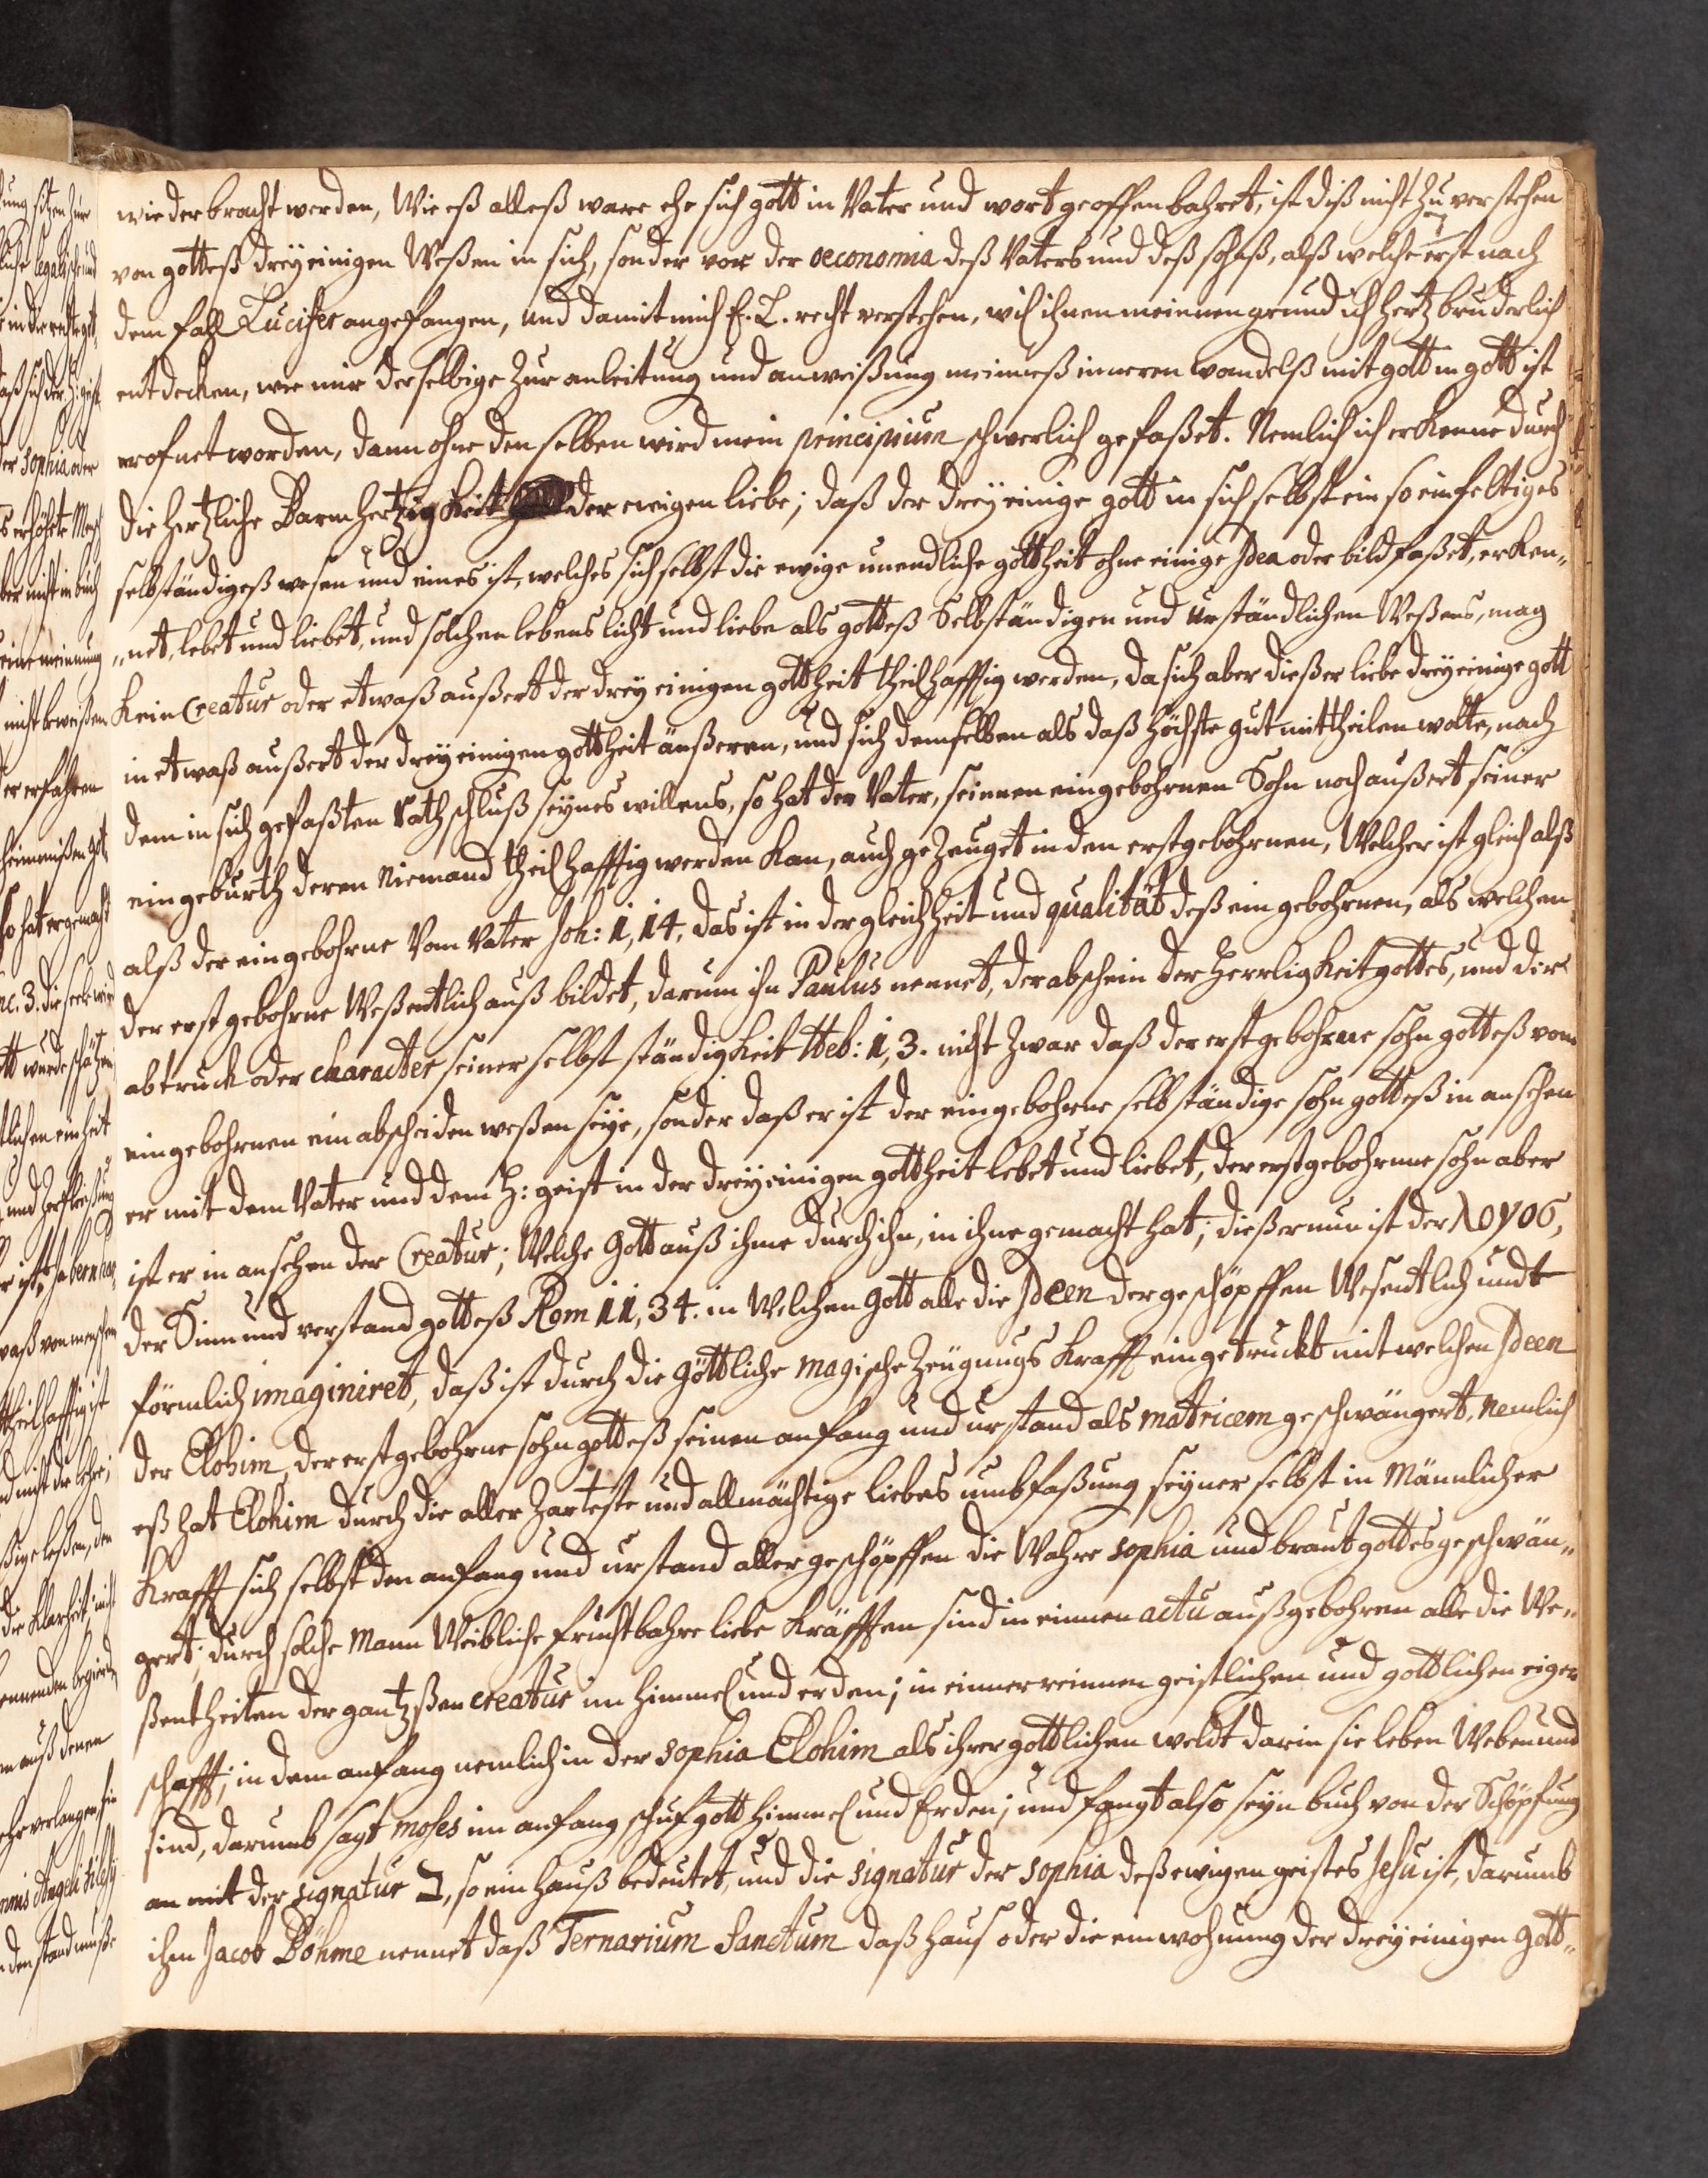 wiederbracht werden, Wie eß alleß ware ehe sich gott in Vater und wort geoffenbahret, ist diß nicht zu verstehen
von gotteß dreyeinigen Weßen in sich, sonder vor der oeconomia deß Vaters und deß sohnß, alß welche erst nach
dem fall Lucifer angefangen, und damit mich E. L. recht verstehen, wil ihnen meinnen grund ich hertz bruderlich
entdecken, wie mir derselbige zur anleitung und anweißung meineß inneren wandelß mit gott in gott ist
erofnet worden, dann ohne denselben wird mein principium schwerlich gefaßet. Nemlich ich erkenne durch
die hertzliche Barmhertzigkeit der ewigen liebe; daß der dreyeinige gott in sich selbst ein so einfeltiges
selbständigeß wesen und eines ist, welches sich selbst die ewige unendliche gottheit ohne einige Idea oder bild faßet, erken„
„net, lebet und liebet, und solchen lebens licht und liebe als gotteß Selbständigen und Urständlichen Weßens, mag
kein Creatur oder etwaß außert der dreyeinigen gottheit theilhafftig werden, da sich aber dießer liebe dreyeinige gott
in etwaß außert der dreyeinigen gottheit äußeren, und sich demselben als daß höchste gut mittheilen wolte, nach
dem in sich gefaßten rathschluß seynes willens, so hat der Vater, seinnen eingebohrnen Sohn noch außert seiner
eingeburth deren Niemand theilhafftig werden kan, auch gezeuget in den erstgebohrnen, Welcher ist gleich alß
alß der eingebohrne Vom Vater Joh: 1, 14. das ist in der gleichheit und qualität deß eingebohrnen, als welchen
der erstgebohrne Weßentlich außbildet, darum ihn Paulus nennet, der abschein der Herrligkeit gottes, und der
abtruck oder character seiner selbstständigkeit Heb: 1, 3. nicht zwar daß der erstgebohrne sohn gotteß vom
eingebohrnen ein abscheiden weßen seye, sonder daß er ist der eingebohrne selbständige sohn gotteß in ansehen
er mit dem Vater und dem H: geist in der dreyeinigen gottheit lebet und liebet, der erstgebohrne sohn aber
ist er in ansehen der Creatur; Welche Gott auß ihme durch ihn, in ihme gemacht hat; dießer nun ist der λογος,
der Sinn und verstand gotteß Rom 11, 34. in Welchen Gott alle die Ideen der geschöpffen Wesentlich undt
förmlich imaginiret, daß ist durch die Göttliche magische Zeugungs krafft eingetruckt mit welchen Ideen
der Elohim, der erstgebohrne sohn gotteß seinen anfang und urstand als matricem geschwängert, Nemlich
eß hat Elohim durch die aller zarteste und allmächtige liebes umbfaßung seyner selbst in Männlicher
krafft sich selbst den anfang und urstand aller geschöpffen die Wahre sophia und braut gottes geschwän„
gert; durch solche Mann Weibliche fruchtbahre liebe kräfften sind in einnen actu außgebohren alle die We„
ßentheiten der gantzen creatur im himmel und erden; in einner reinnen geistlichen und gottlichen eigen
schafft; in dem anfang nemlich in der sophia Elohim als ihrer gottlichen weldt darin sie leben Weben und
sind, darumb sagt moses im anfang schuf gott himmel und Erden; und fangt also seyn buch von der Schöpfung
an mit der signatur ב, so ein hauß bedeutet, und die signatur der sophia deß ewigen geistes Jesu ist, darumb
ihn Jacob Böhme nennet daß Ternarium Sanctum daß hauß oder die einwohnung der dreyeinigen Gott„